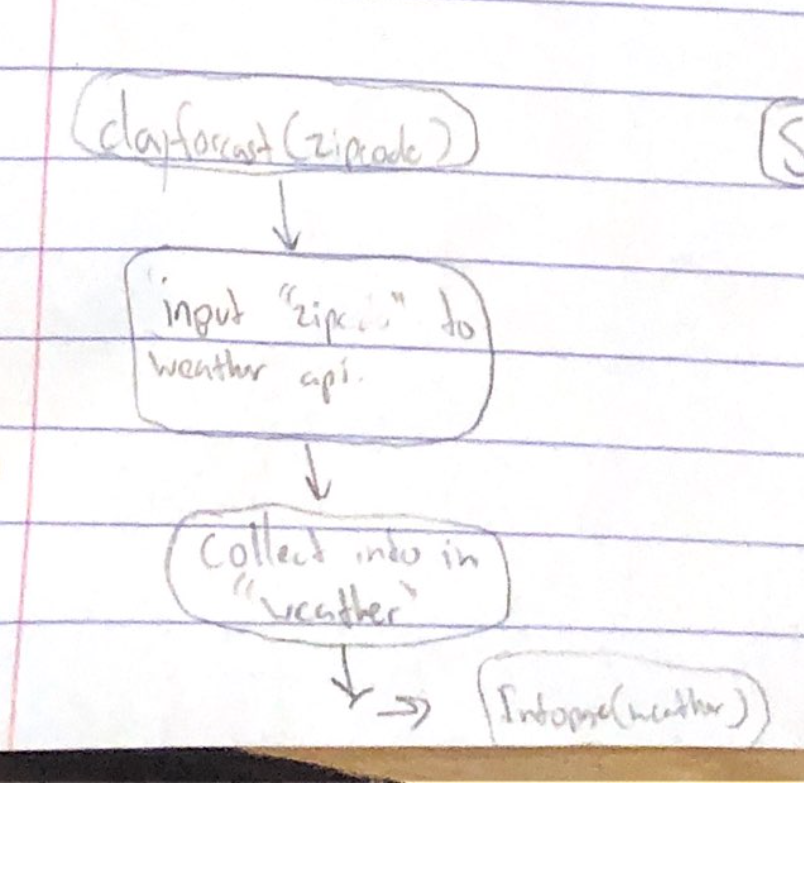 dayforcast(zipcode)
S
input "zipc..." to
weather api.
Collect info in
"weather"
Infopage(weather)